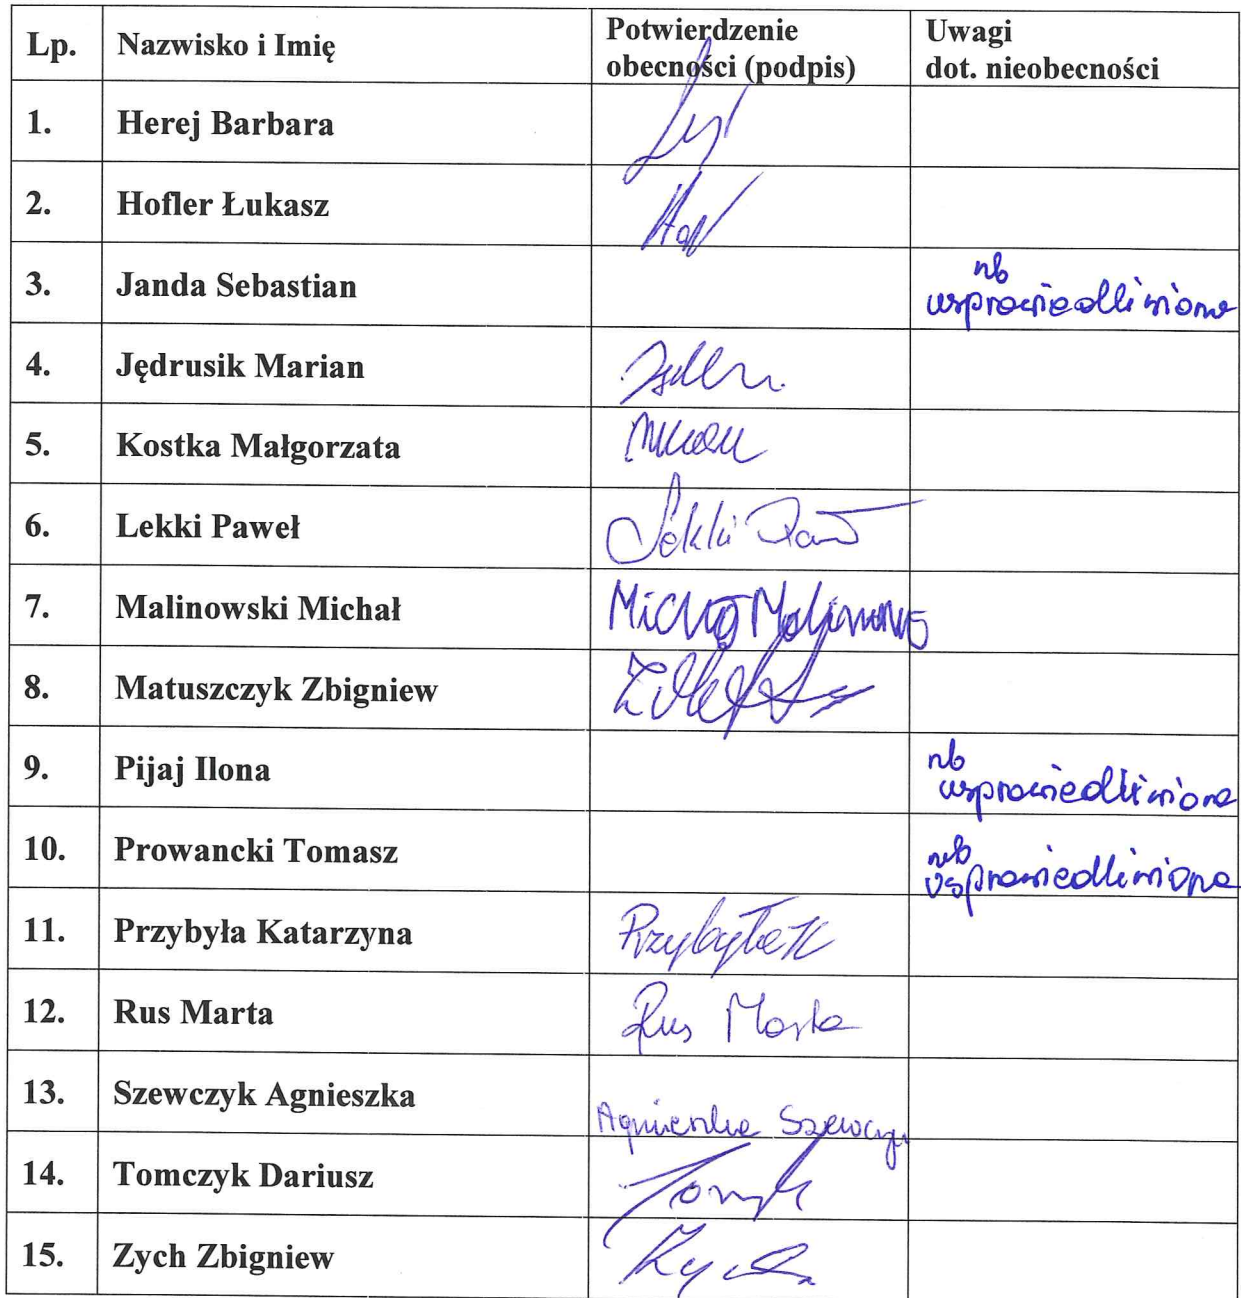 Lp. Nazwisko i Imię Potwierdzenie obecności (podpis) Uwagi dot. nieobecności
1. Herej Barbara
2. Hofler Łukasz
3. Janda Sebastian nb usprawiedliwiona
4. Jędrusik Marian
5. Kostka Małgorzata
6. Lekki Paweł Lekki Paweł
7. Malinowski Michał Michał Malinowski
8. Matuszczyk Zbigniew
9. Pijaj Ilona nb usprawiedliwiona
10. Prowancki Tomasz nb usprawiedliwiona
11. Przybyła Katarzyna Przybyła K
12. Rus Marta Rus Marta
13. Szewczyk Agnieszka Agnieszka Szewczyk
14. Tomczyk Dariusz
15. Zych Zbigniew Zych